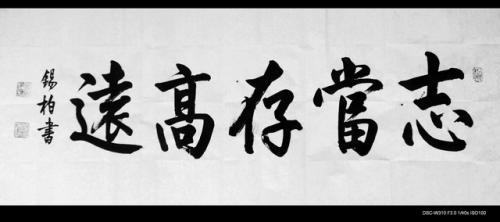 志當存高遠
錫柏書
DSC-W310 F3.0 1/40s ISO100